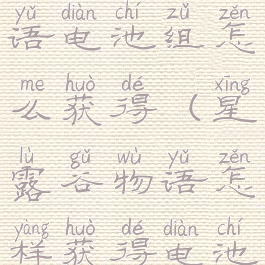 yǔ diàn chí zǔ zěn
语电池组怎
me huò dé xīng
么获得（星
lù gǔ wù yǔ zěn
露谷物语怎
yàng huò dé diàn chí
样获得电池